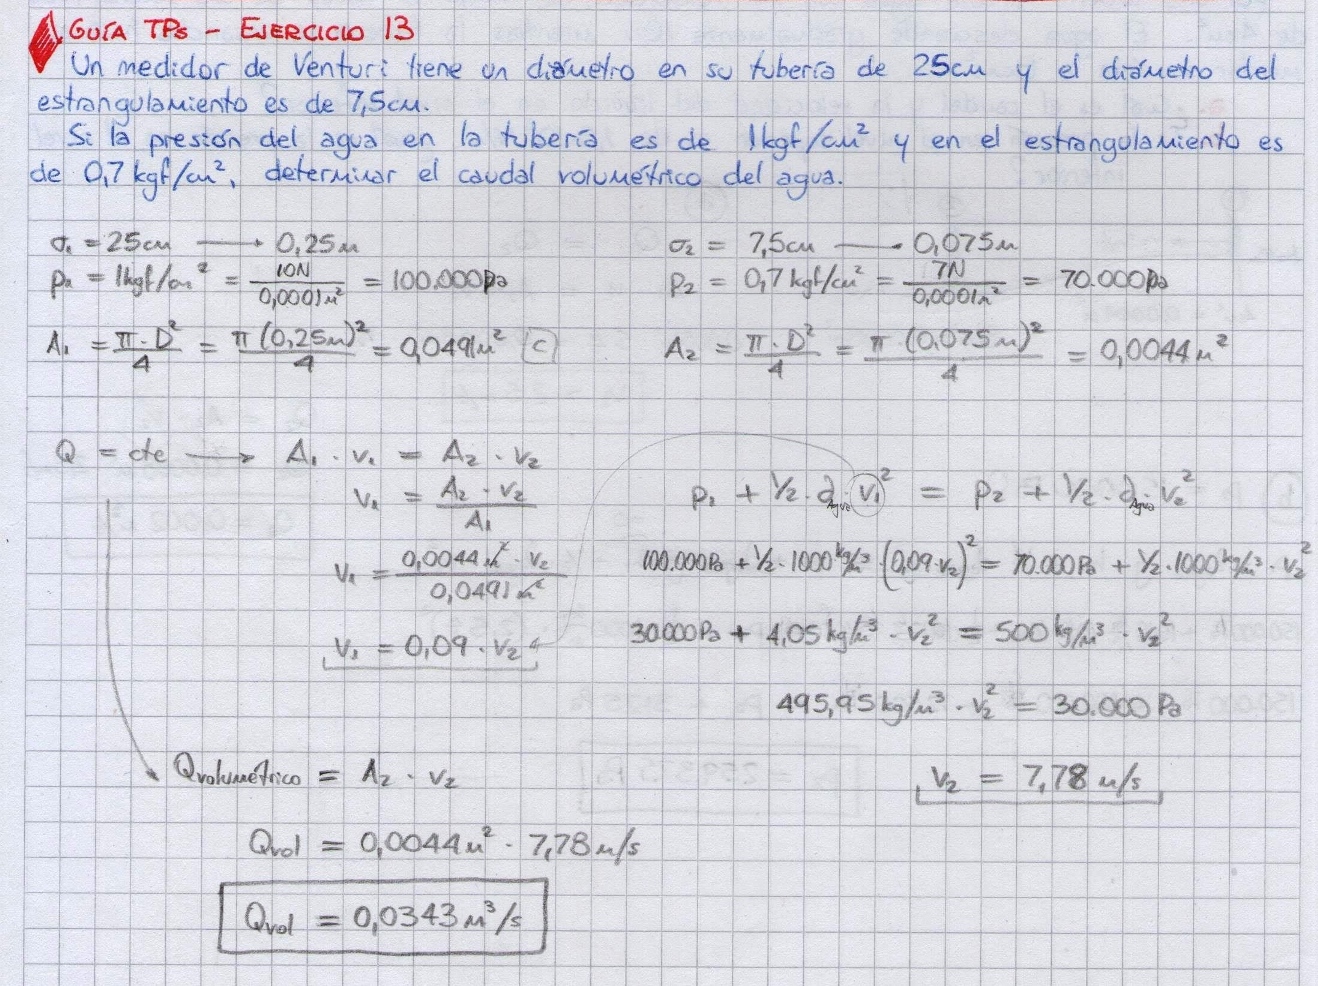 GUÍA TPs - EJERCICIO 13
Un medidor de Venturi tiene un diámetro en su tubería de 25cm y el diámetro del
estrangulamiento es de 7,5cm.
Si la presión del agua en la tubería es de 1kgf/cm² y en el estrangulamiento es
de 0,7 kgf/cm², determinar el caudal volumétrico del agua.
σ₁ = 25cm → 0,25m
σ₂ = 7,5cm → 0,075m
p₁ = 1kgf/cm² = 10N / 0,0001m² = 100.000pa
p₂ = 0,7 kgf/cm² = 7N / 0,0001m² = 70.000pa
A₁ = π·D² / 4 = π(0,25m)² / 4 = 0,0491m² [C]
A₂ = π·D² / 4 = π(0,075m)² / 4 = 0,0044m²
Q = cte → A₁ · v₁ = A₂ · v₂
v₁ = A₂ · v₂ / A₁
v₁ = 0,0044m² · v₂ / 0,0491m²
v₁ = 0,09 · v₂
p₁ + 1/2 · ∂Agua · v₁² = p₂ + 1/2 · ∂Agua · v₂²
100.000Pa + 1/2 · 1000kg/m³ · (0,09·v₂)² = 70.000Pa + 1/2 · 1000kg/m³ · v₂²
30.000Pa + 4,05kg/m³ · v₂² = 500kg/m³ · v₂²
495,95kg/m³ · v₂² = 30.000Pa
v₂ = 7,78 m/s
Qvolumétrico = A₂ · v₂
Qvol = 0,0044m² · 7,78m/s
Qvol = 0,0343m³/s